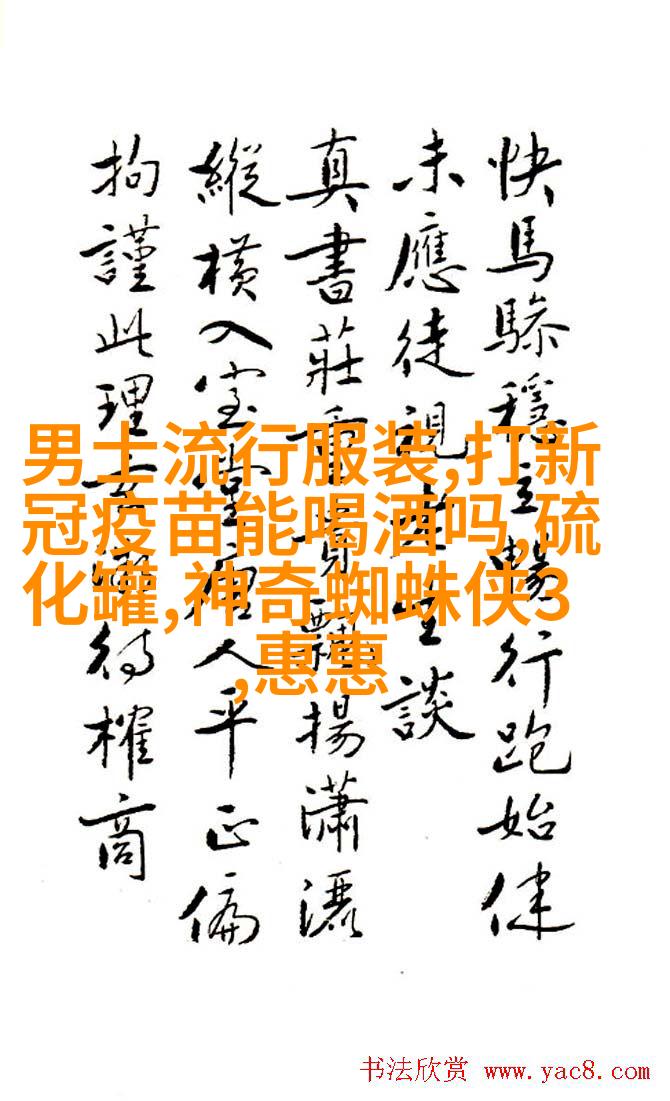 快馬穩立暢行跑始健
未應徒談
真書莊重飄揚瀟灑
縱橫入室人平正偏
拘謹此理待榷商
男士流行服装,打新
冠疫苗能喝酒吗,硫
化罐,神奇蜘蛛侠3
,惠惠
书法欣赏 www.yac8.com